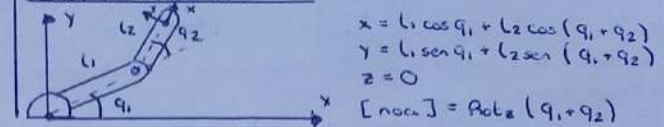 y
x
l₂
q₂
l₁
q₁
x
x = l₁ cos q₁ + l₂ cos (q₁ + q₂)
y = l₁ sen q₁ + l₂ sen (q₁ + q₂)
z = 0
[noa] = Rotz (q₁ + q₂)